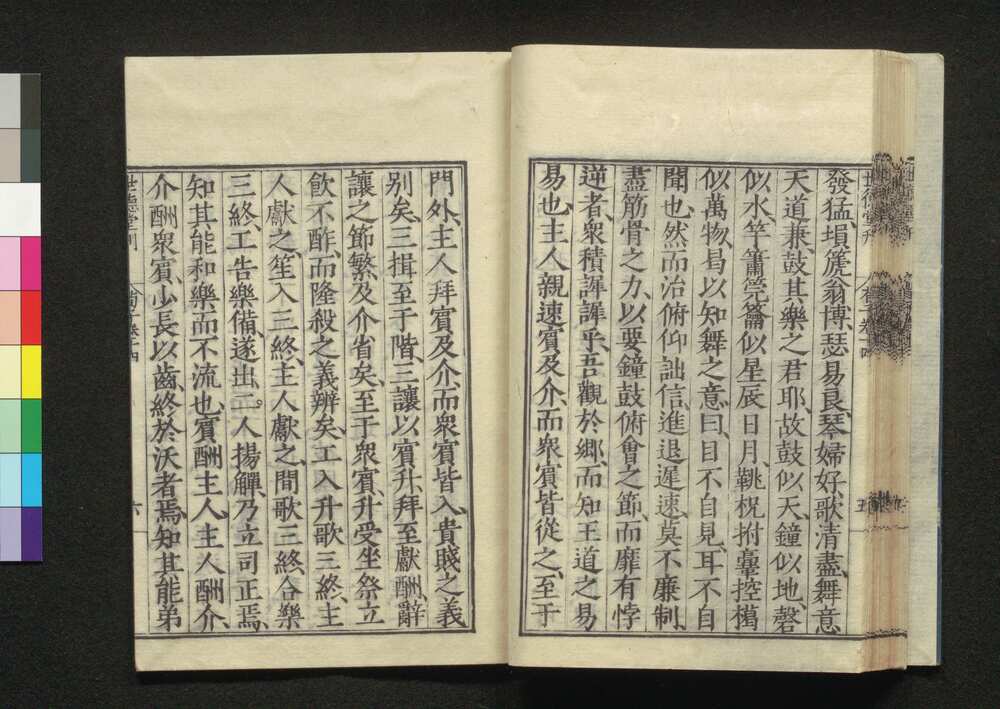 發猛塤箎翁博、瑟易良、琴婦好、歌清盡、舞意
天道兼、鼓其樂之君耶、故鼓似天、鐘似地、磬
似水、竽簫筦籥似星辰日月、鞉柷拊鞷控楬
似萬物、曷以知舞之意、曰目不自見、耳不自
聞也、然而治俯仰詘信進退遲速、莫不廉制
盡筋骨之力、以要鐘鼓俯會之節、而靡有悖
逆者、衆積謘謘乎、吾觀於鄉、而知王道之易
易也、主人親速賓及介、而衆賓皆從之、至于
門外、主人拜賓及介、而衆賓皆入、貴賤之義
別矣、三揖至于階、三讓以賓升、拜至獻酬、辭
讓之節繁、及介省矣、至于衆賓、升受坐祭立
飲不酢、而降殺之義辨矣、工入升歌三終、主
人獻之、笙入三終、主人獻之、間歌三終、合樂
三終、工告樂備、遂出、二人揚觶、乃立司正焉、
知其能和樂而不流也、賓酬主人、主人酬介、
介酬衆賓、少長以齒、終於沃者焉、知其能弟
世德堂刊
六